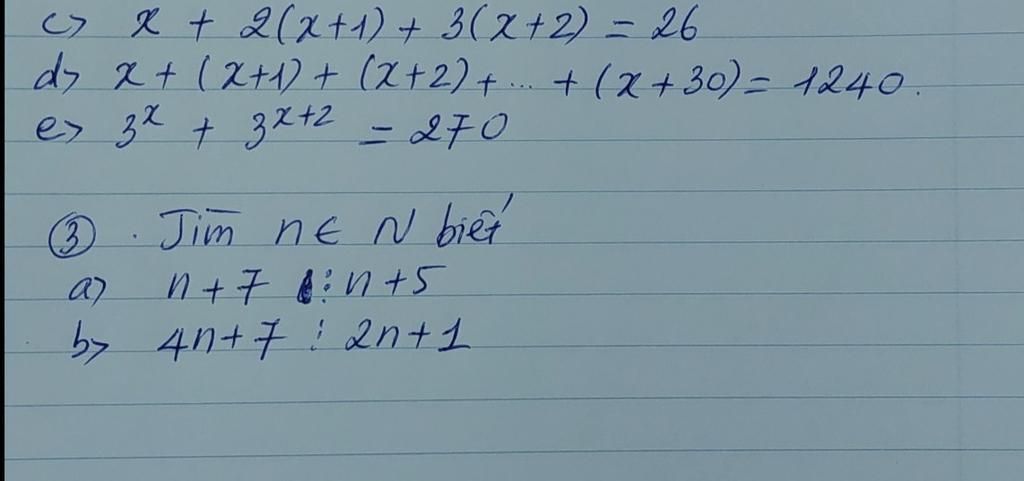 c> x + 2(x+1) + 3(x+2) = 26
d> x + (x+1) + (x+2) + ... + (x+30) = 1240.
e> 3^x + 3^{x+2} = 270
③. Tìm n ∈ N biết
a> n+7 ⋮ n+5
b> 4n+7 ⋮ 2n+1